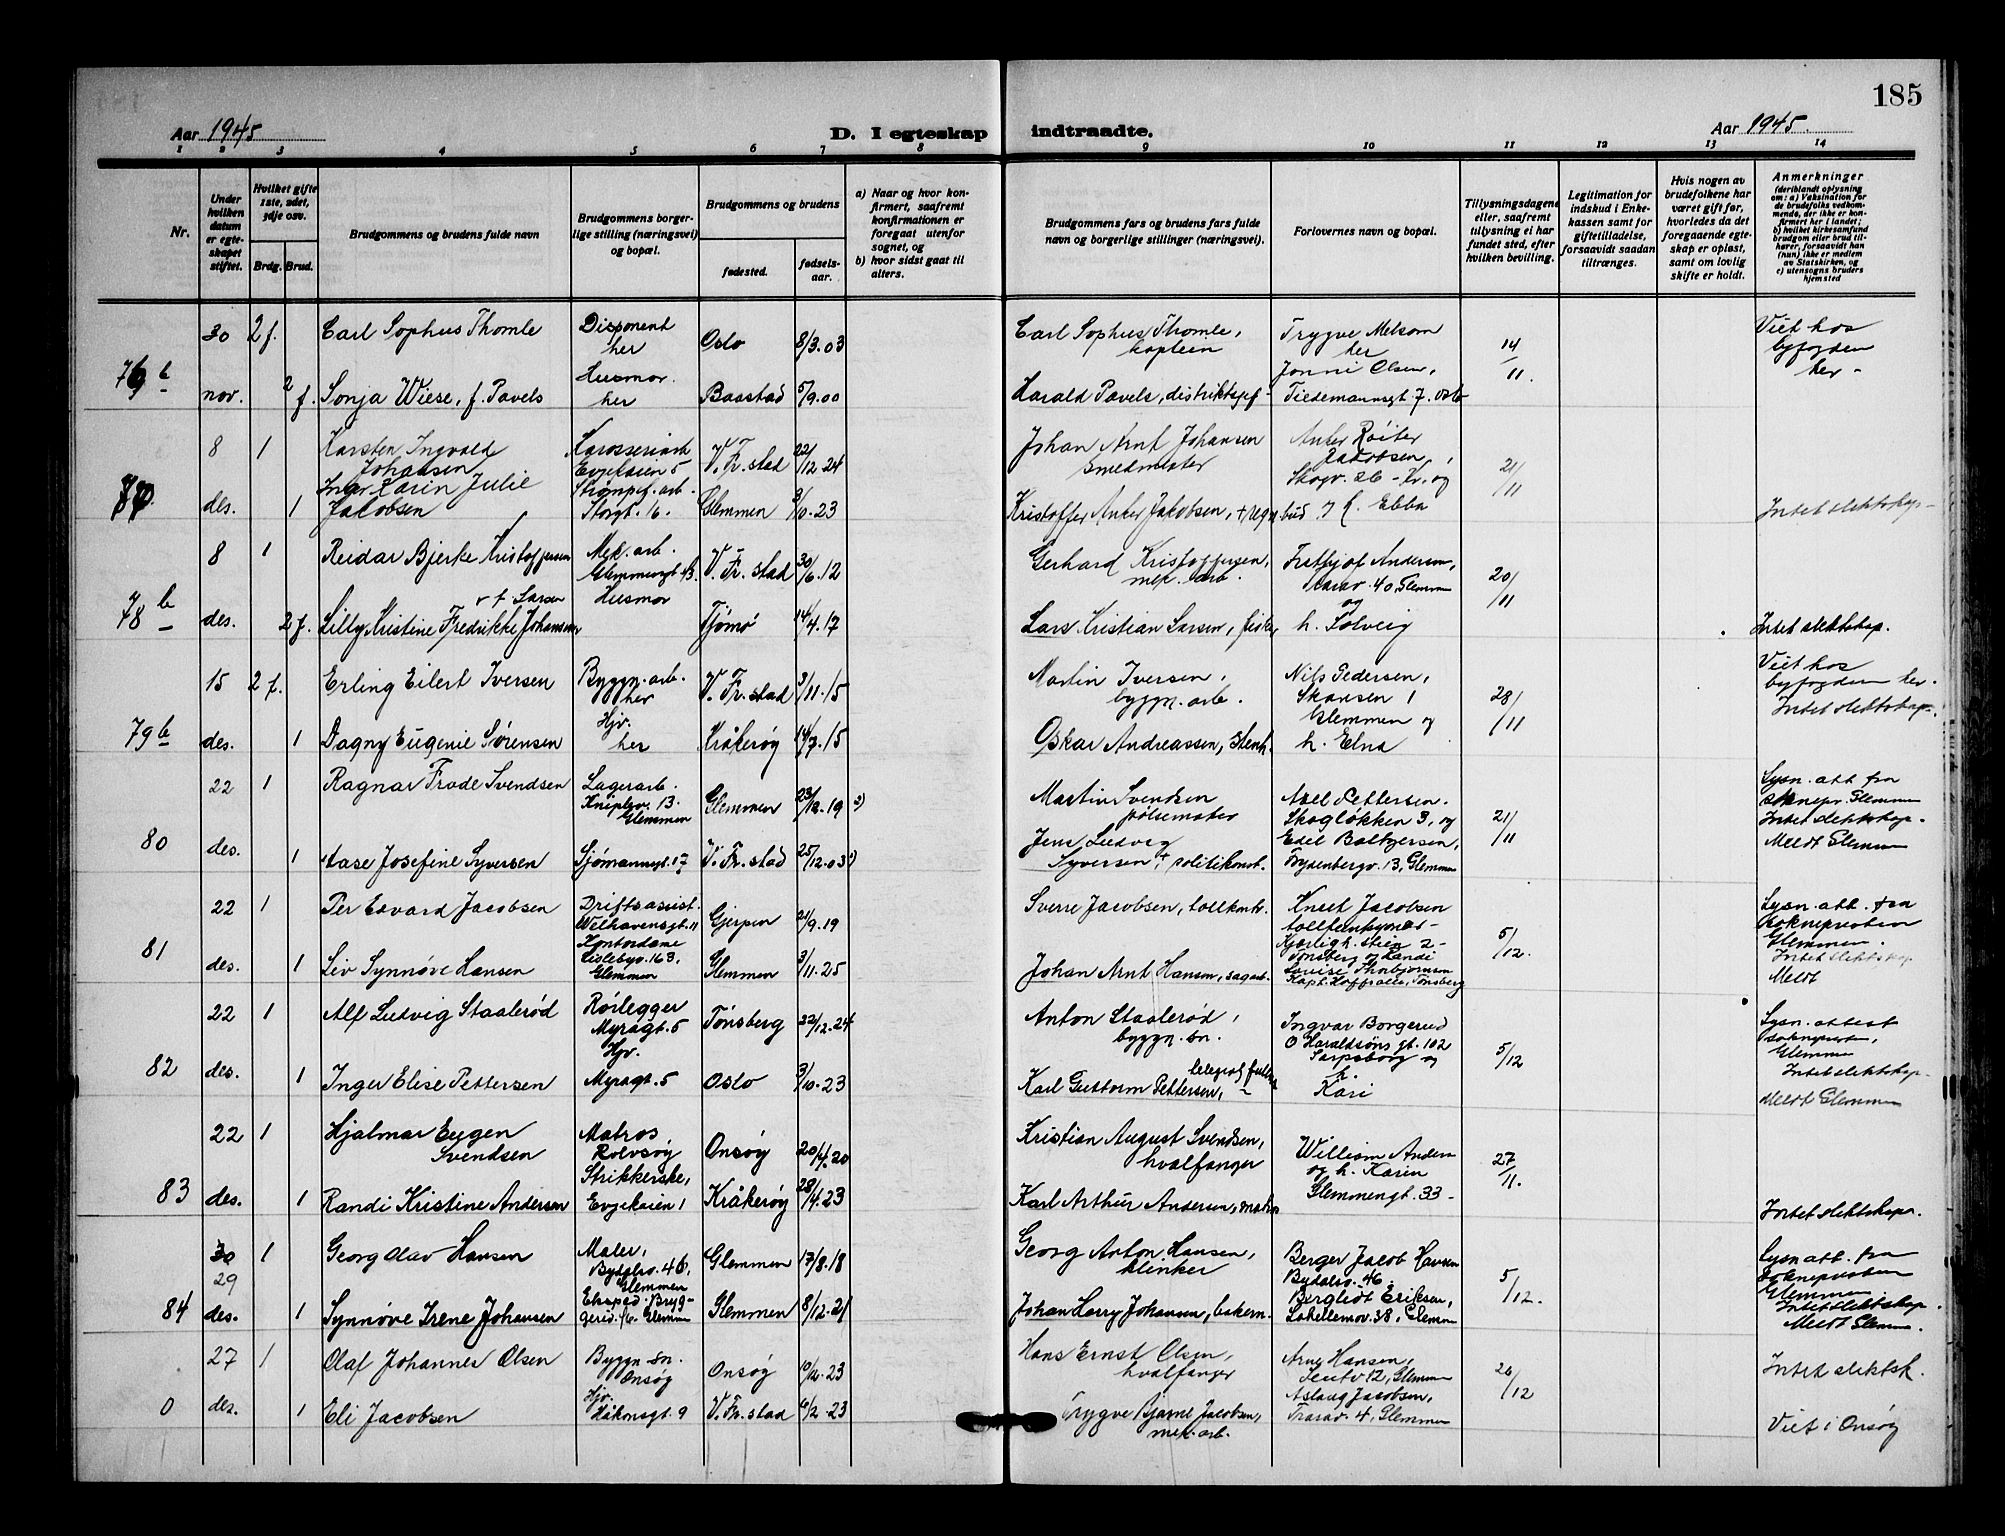 185
Aar 1945
D. I egteskap indtraadte.
Aar 1945
1 2 3 4 5 6 7 8 9 10 11 12 13 14
Nr.
Under hvilken datum er egteskapet stiftet.
Hvilket gifte 1ste, 2det, 3dje osv.
Brdg. Brud.
Brudgommens og brudens fulde navn
Brudgommens borgerlige stilling (næringsvei) og bopæl.
Brudgommens og brudens
fødested.
fødselsaar.
a) Naar og hvor konfirmert, saafremt konfirmationen er foregaat utenfor sognet, og
b) hvor sidst gaat til alters.
Brudgommens fars og brudens fars fulde navn og borgerlige stillinger (næringsvei).
Forlovernes navn og bopæl.
Tillysningsdagene eller, saafremt tillysning ei har fundet sted, efter hvilken bevilling.
Legitimation for indskud i Enkekassen samt for giftetilladelse, forsaavidt saadan tiltrænges.
Hvis nogen av brudefolkene har været gift før, hvorledes da det foregaaende egteskap er opløst, samt om lovlig skifte er holdt.
Anmerkninger (deriblandt oplysning om: a) Vaksination for de brudefolks vedkommende, der ikke er konfirmert her i landet; b) hvilket kirkesamfund brudgom eller brud tilhører, forsaavidt han (hun) ikke er medlem av Statskirken, og c) utensogns bruders hjemsted
30 2 f. Carl Sophus Thomle Disponent her Oslo 8/3.03 Carl Sophus Thomle, kaptein Trygve Melsom her 14/11 Viet hos byfogden her -
nov. 2 f. Sonja Wiese, f. Pavels Husmor. her Baastad 5/9.00 Harald Pavels, Jonni Olsen, Tiedemannsgt. 7. Oslo
8 1 Karsten Ingvald Johansen Karosseriarb Evjekaien 5 V. Fr. stad 22/12.24 Johan Arnt Johansen smedmester Anker Roiter Jakobsen, Skogv. 26 21/11
des. 1 Inger Karin Julie Jacobsen Strømpef. arb. Storgt. 16. Glemmen 3/10.23 Kristoffer Anker Jakobsen, Ebba Intet slektskap -
8 1 Reidar Bjerke Kristoffersen Mek. arb. V. Fr. stad 30/6.12 Gerhard Kristoffersen, mek. arb. Fritjof Andersen, 40 Glemmen og 20/11
78 b des. 2 f. Lilly Kristine Fredrikke Johansen f. Larsen Husmor Tjømø 14/4.17 Lars Kristian Larsen, fisker h. Solveig Intet slektskap.
15 2 f. Erling Eilert Iversen Byggn. arb. her V. Fr. stad 3/11.15 Martin Iversen, byggn. arb. Nils Pedersen, Skansen 1 Glemmen og 28/11 Viet hos byfogden her. Intet slektskap.
79 b des. 1 Dagny Eugenie Sørensen Hjv. her Kråkerøy 14/7.15 Oskar Andreassen, stenh. h. Elna
22 1 Ragnar Frode Svendsen Lagerarb. Kniplev. 13. Glemmen Glemmen 23/12.19 Martin Svendsen pølsemaker Axel Pettersen. Skogløkken 3, og 21/11 Lysn. att. fra soknepr. Glemmen Intet slektskap.
80 des. 1 Aase Josefine Syversen Sjømannsgt. 17 V. Fr. stad 25/12.03 Jens Ludvig Syversen, politikonst. Edel Baltzersen, Frydenbergv. 13, Glemmen Meldt Glemmen
22 1 Per Edvard Jacobsen Driftsassist. Welhavensgt. 11 Gjerpen 21/9.19 Sverre Jacobsen, tollkontr. Knut Jacobsen Kjærligh. stien 2 - 5/12. Lysn. att. fra Soknepresten Glemmen.
81 des. 1 Liv Synnøve Hansen Kontordame Lislebyv. 163, Glemmen Glemmen 3/11.25 Johan Arnt Hansen, sagarb. Tønsberg og Randi Louise Thorbjørnsen Tønsberg Intet slektskap Meldt
22 1 Alf Ludvig Staalerød Rørlegger Myragt. 5 Tønsberg 22/12.24 Anton Staalerød, byggm. Ingvar Borgerud O Haraldsøns gt. 102 Sarpsborg og 5/12 Lysn. attest soknepresten, Glemmen Intet slektskap.
82 des. 1 Inger Elise Pettersen Hjv. Myragt. 5 Oslo 3/10.23 Karl Guttorm Pettersen, h. Kari Meldt Glemmen
22 1 Hjalmar Eugen Svendsen Matros Rolvsøy Onsøy 20/4.20 Kristian August Svendsen, hvalfanger William Andersen og h. Karin 27/11.
83 des. 1 Randi Kristine Andersen Strikkerske, Evjekaien 1 Kråkerøy 28/4.23 Karl Arthur Andersen, Glemmengt. 33 - Intet slektskap.
30 29 1 Georg Olav Hansen Maler, Bydalsv. 46, Glemmen Glemmen 17/8.18 Georg Anton Hansen, klinker Berger Jacob Hansen Bydalsv. 46. 5/12. Lysn att. fra Soknepresten Glemmen
84 des. 1 Synnøve Irene Johansen Eksped. Glemmen Glemmen 8/12.21 Johan Harry Johansen, bakerm. Bergliot Eriksen, 38, Glemmen Intet slektskap. Meldt Glemmen.
27 1 Olaf Johannes Olsen Byggn. Onsøy Onsøy 10/12.23 Hans Ernst Olsen, hvalfanger Arne Hansen, 12, Glemmen 26/12 Intet slektsk.
0 des. 1 Eli Jacobsen Hjv. Håkonsgt. 9 V. Fr. stad 6/2.23 Trygve Bjarne Jacobsen, mek. arb. Aslaug Jacobsen, Trarav. 4, Glemmen Viet i Onsøy